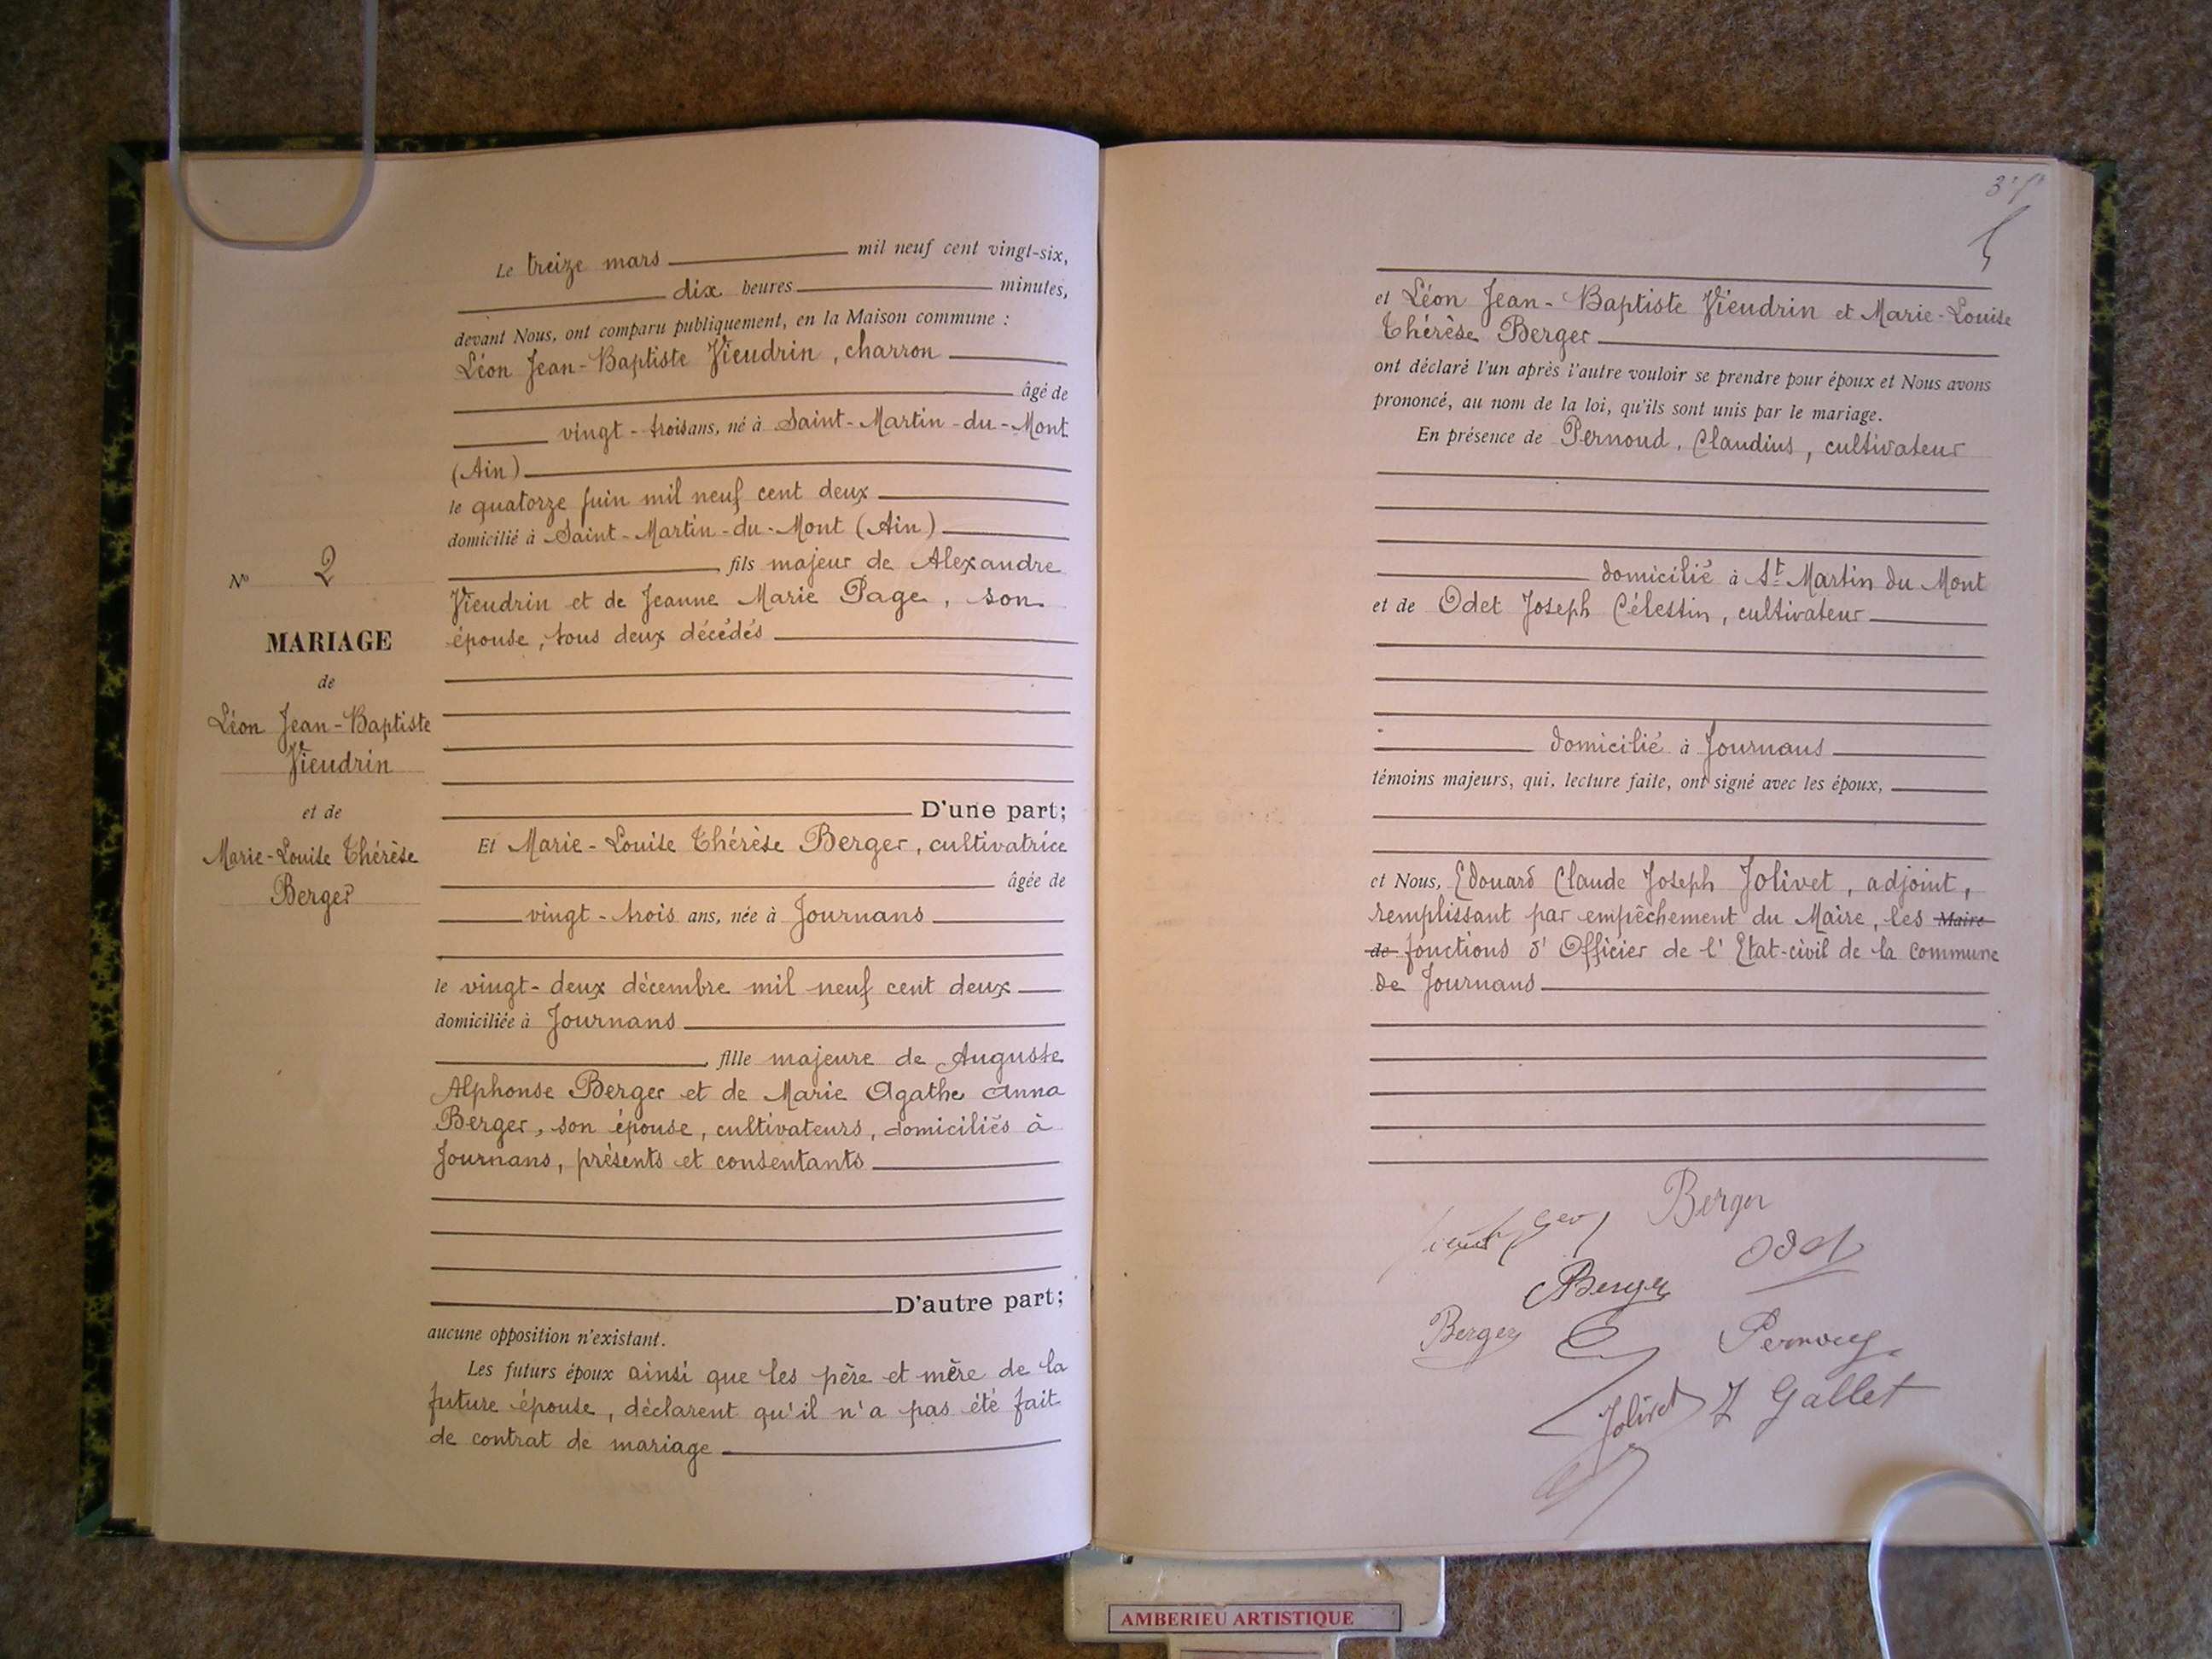 N° 2
MARIAGE
de
Léon Jean-Baptiste
Vieudrin
et de
Marie-Louise Thérèse
Berger
Le treize mars mil neuf cent vingt-six,
dix heures minutes,
devant Nous, ont comparu publiquement, en la Maison commune :
Léon Jean-Baptiste Vieudrin, charron
âgé de
vingt-trois ans, né à Saint-Martin-du-Mont
(Ain)
le quatorze juin mil neuf cent deux
domicilié à Saint-Martin-du-Mont (Ain)
fils majeur de Alexandre
Vieudrin et de Jeanne Marie Page, son
épouse, tous deux décédés
D'une part;
Et Marie-Louise Thérèse Berger, cultivatrice
âgée de
vingt-trois ans, née à Journans
le vingt-deux décembre mil neuf cent deux
domiciliée à Journans
fille majeure de Auguste
Alphonse Berger et de Marie Agathe Anna
Berger, son épouse, cultivateurs, domiciliés à
Journans, présents et consentants
D'autre part;
aucune opposition n'existant.
Les futurs époux ainsi que les père et mère de la
future épouse, déclarent qu'il n'a pas été fait
de contrat de mariage
et Léon Jean-Baptiste Vieudrin et Marie-Louise
Thérèse Berger
ont déclaré l'un après l'autre vouloir se prendre pour époux et Nous avons
prononcé, au nom de la loi, qu'ils sont unis par le mariage.
En présence de Pernoud, Claudius, cultivateur
domicilié à St Martin du Mont
et de Odet Joseph Célestin, cultivateur
domicilié à Journans
témoins majeurs, qui, lecture faite, ont signé avec les époux,
et Nous, Edouard Claude Joseph Jolivet, adjoint,
remplissant par empêchement du Maire, les Maire
de fonctions d'Officier de l'Etat-civil de la Commune
de Journans
Berger
Odet
ABerger
Berger
Jolivet J Gallet
AMBERIEU ARTISTIQUE